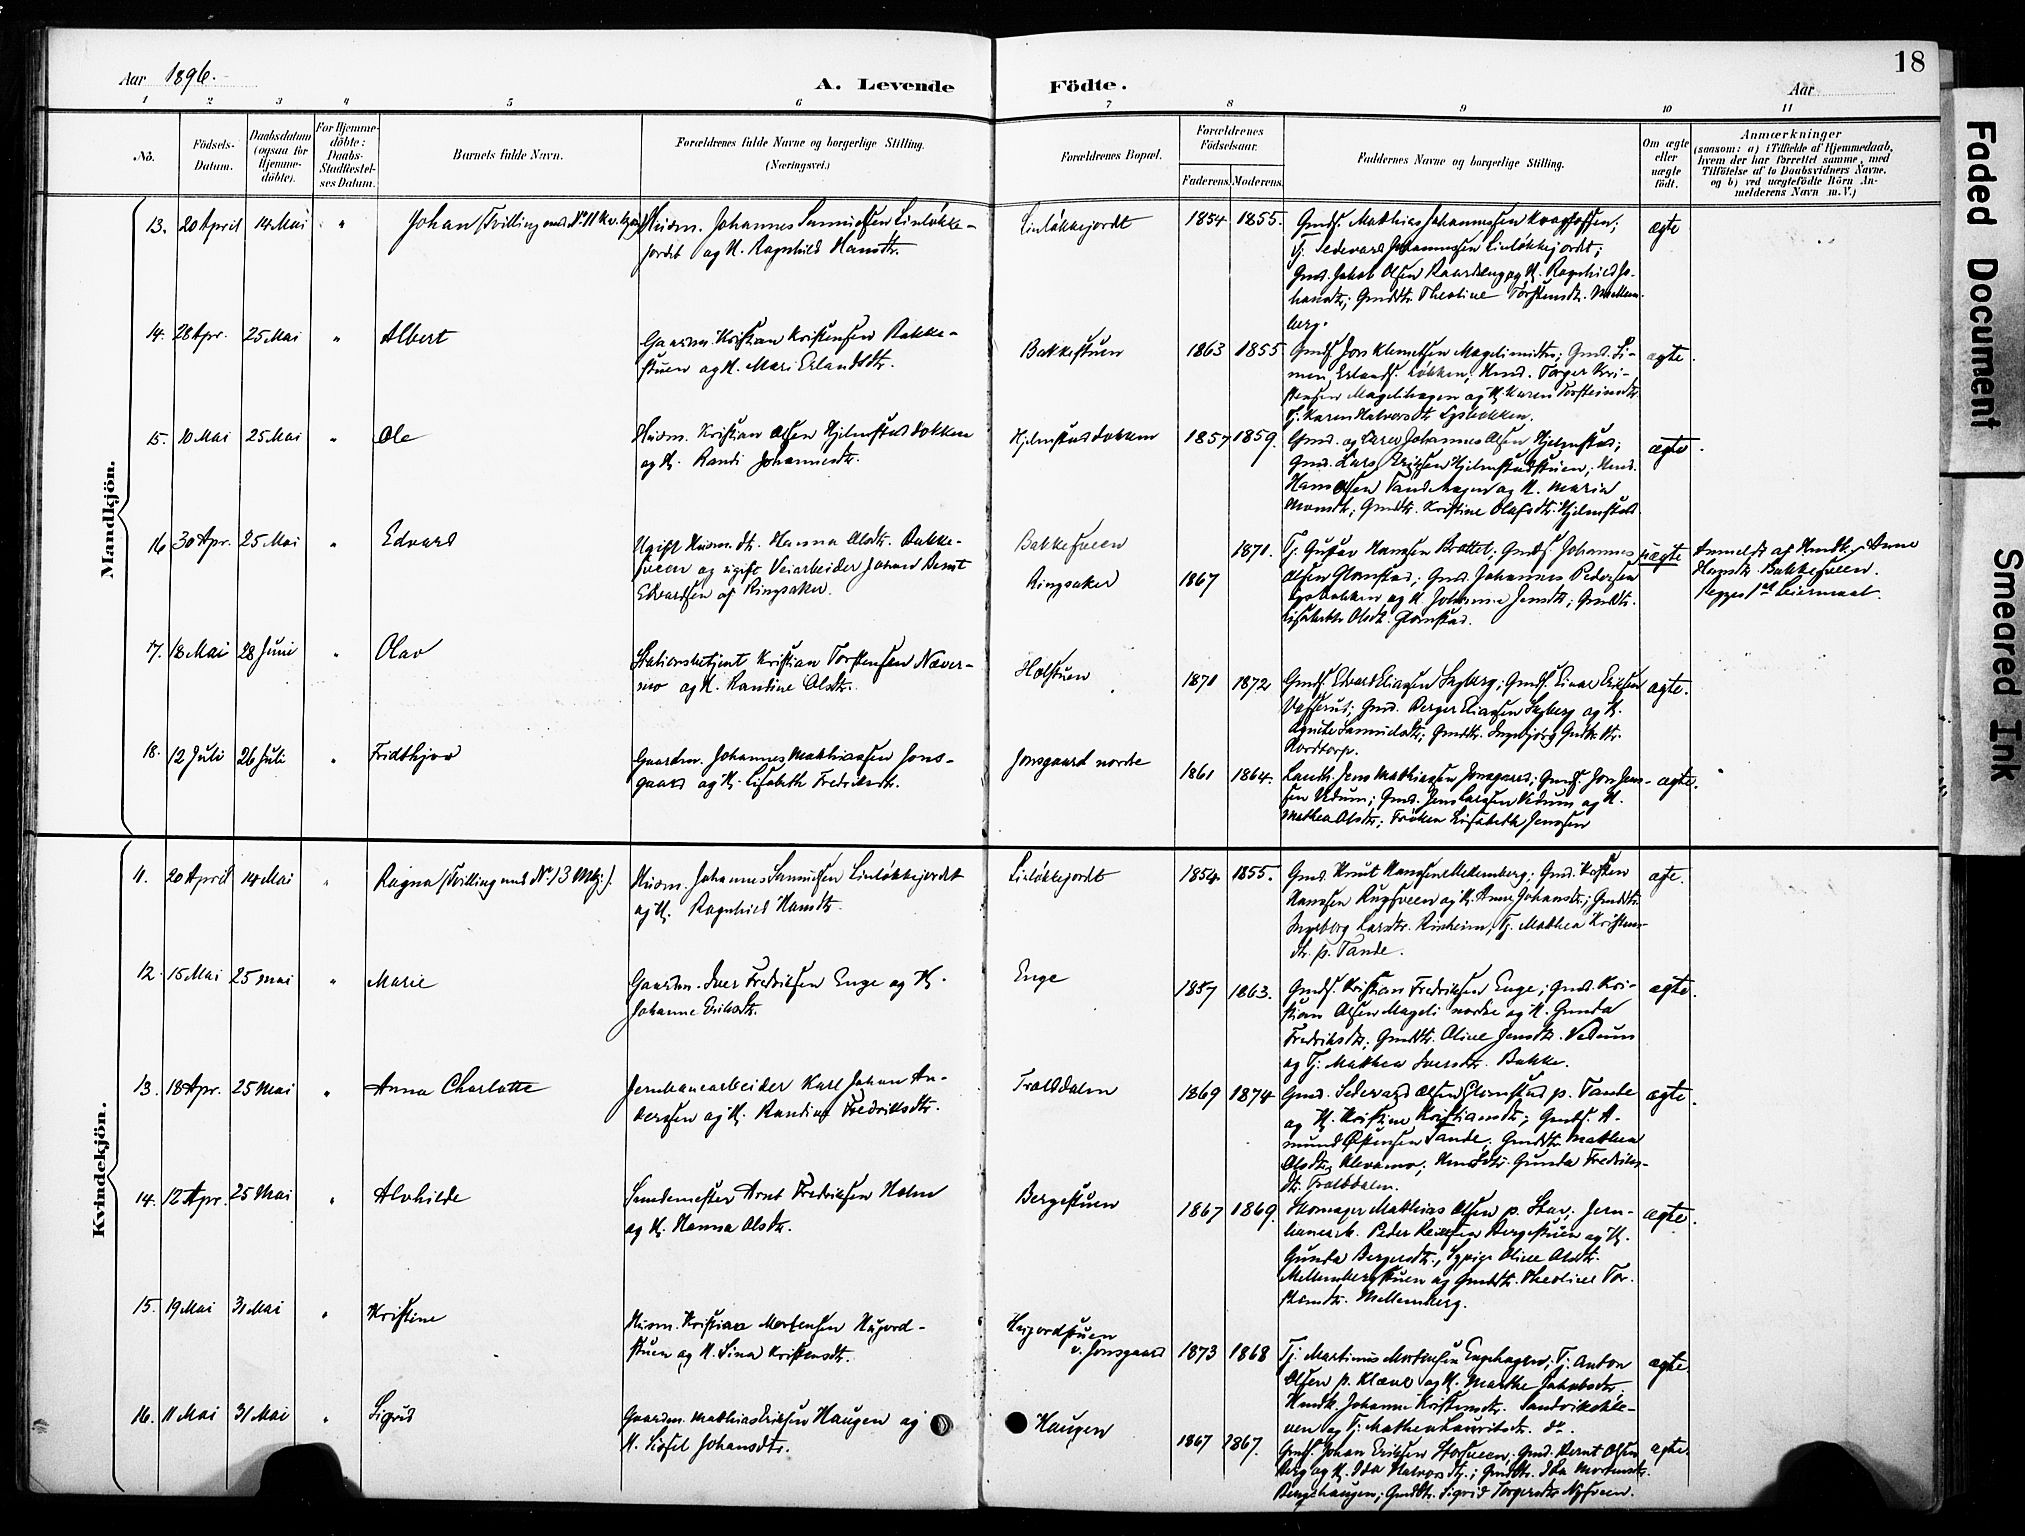 18
Aar 1896.
A. Levende Födte.
Aar
1 2 3 4 5 6 7 8 9 10 11
No.
Födsels-Datum.
Daabsdatum (ogsaa for Hjemme-döbte).
For Hjemme-döbte: Daabs-Stadfæstel-ses Datum.
Barnets fulde Navn.
Forældrenes fulde Navne og borgerlige Stilling. (Næringsvei.)
Forældrenes Bopæl.
Forældrenes Födselsaar.
Faderens. Moderens.
Faddernes Navne og borgerlige Stilling.
Om ægte eller uægte födt.
Anmærkninger
(saasom: a) i Tilfælde af Hjemmedaab, hvem der har forrettet samme, med Tilföielse af to Daabsvidners Navne. og b) ved uægtefödte Börn An-melderens Navn m. V.)
Mandkjön.
13. 20 April 14 Mai " Johan (Tvilling med No 11 Kvkj.)
Husm. Johannes Samuelsen Linløkke-
jordet og H. Ragnhild Hansdtr.
Linløkkejordt 1854 1855.
Gmds. Mathias Johannessen
Tj. Sedevard Johannessen Linløkkejordt;
Gmd. Jakob Olsen og H. Ragnhild Jo-
hansdtr; Gmddtr. Theoline Torstensdtr. Mellem-
berg.
ægte
14. 28 Apr. 25 Mai " Albert
Gaardm. Kristian Kristensen Bakke-
stuen og H. Mari Erlandsdtr.
Bakkestuen 1863 1855
Gmds. Jon Klemetsen Magelimidtre; Gmd. Si-
men Erlands. Løkken; Hmd. Torger Kri-
stensen Magelihagen og H. Karen Torsteinsdtr
Tj. Karen Halvorsdtr Lysbakken.
ægte.
15. 10 Mai 25 Mai " Ole
Husm. Kristian Olsen Hjelmstadbakken
og H. Randi Johannesdtr.
Hjelmstadbakken 1857 1859.
Gmd. og Lærer Johannes Olsen Hjelmstad;
Gmd. Lars Eriksen Hjelmstadstuen; Hmd.
Hans Olsen Tandehagen og H. Maria
Gmddtr. Kristine Olafsdtr. Hjelmstad.
ægte.
16 30 Apr. 25 Mai " Edvard
Ugift Husm. dt. Hanna Olsdtr. Bakke-
sveen og ugift Veiarbeider Johan Bernt
Edvardsen af Ringsaker.
Bakkesveen
Ringsaker
1867 1871.
Tj. Gustav Hanssen Brattet; Gmds. Johannes
Olsen Glomstad; Gmd. Johannes Pedersen
Lysbakken og H. Johanne Jensdtr; Gmddtr.
Lisabethe Olsdt. Glomstad.
uægte
Anmeldt af Hmdk. Anne
Hansdtr. Bakkesveen.
Begges 1ste Leiermaal.
17. 18 Mai 28 Juni " Olav
Stationsbetjent Kristian Torstensen Næver-
mo og H. Randine Olsdtr.
Holstuen 1871 1872
Gmds. Edvard Eliassen Sagberg; Gmds. Einar Eriksen
Vasserud; Gmd. Berger Eliassen Sagberg og H.
Agnete Samuelsdtr; Gmddtr. Ingebjørg
Nordtorp.
ægte.
18. 12 Juli 26 Juli " Fridthjov
Gaardm. Johannes Mathiassen Jons-
gaard og H. Lisabeth Fredriksdtr.
Jonsgaard nordre 1861 1864.
Landh. Jens Mathiassen Jonsgaard; Gmds. Jon Jens-
sen Vedum; Gmd. Jens Larssen Vedum og H.
Mathea Olsdtr; Frøken Lisabeth Jenssen
ægte.
Kvindekjön.
11. 20 April 14 Mai " Ragna (Tvilling med No. 13 Mkj.).
Husm. Johannes Samuelsen Linløkkejordet
og H. Ragnhild Hansdtr.
Linløkkejordt 1854 1855.
Gmd. Knut Hanssen Mellemberg; Gmd. Kristen
Hanssen Rugsveen og H. Anne Johansdtr; Gmddtr.
Ingeborg Larsdtr. Rinheim, Tj. Mathea Kristens-
dtr. p. Tande.
ægte.
12. 15 Mai 25 Mai " Marie
Gaardm. Iver Fredriksen Enge og H.
Johanne Eriksdtr.
Enge 1857 1863.
Gmds. Kristian Fredriksen Enge; Gmd. Kri-
stian Olsen Mageli nordre og H. Gunda
Fredriksdtr; Gmddtr. Oline Jensdtr. Vedum
og Tj. Mathea Iversdtr. Bakke.
ægte.
13. 18 Apr. 25 Mai " Anna Charlotte
Jernbanearbeider Karl Johan An-
derssen og H. Randine Fredriksdtr.
Traldalen 1869 1874
Gmd. Sedevard Olsen Glomstad p. Tande
og H. Kristine Kristiansdtr; Gmds. A-
mund Østensen Tande; Gmddtr. Mathea
Olsdtr. Klevamo; Hmddtr. Gunda Fredriks-
dtr. Traldalen.
ægte.
14. 12 Apr. 25 Mai " Alvhilde
Smedemester Arnt Fredriksen Holm
og H. Hanna Olsdtr.
Bergestuen 1867 1869.
Skomager Mathias Olsen p. Stav; Jern-
banearb. Peder Bergestuen og H.
Gunda Bergersdtr., Sypige Oline Olsdtr.
Mellembergstuen og Gmddtr. Theoline Tor-
stensdtr. Mellemberg.
ægte.
15. 19 Mai 31 Mai " Kristine
Husm. Kristian Mortensen Hujord-
stuen og H. Lina Kristensdtr.
Hujordstuen
v. Jonsgaard 1873 1868
Tj. Martinus Mortensen Engehagen; Tj. Anton
Olsen p. Klæve og H. Marthe Jakobsdtr.
Hmdk. Johanne Kristensdtr. Sandvikskle-
ven og Tj. Mathea Lauritsdtr. do.
ægte.
16. 11 Mai 31 Mai " Sigrid
Gaardm. Mathias Eriksen Haugen og
H. Sidsel Johansdtr.
Haugen 1867 1867.
Gmds. Johan Eriksen Storsveen, Gmd. Bernt Olsen
Berg og H. Ida Halvorsdtr.; Gmddtr. Ida Mortensdtr.
Berghaugen; Gmddtr. Sigrid Torgersdtr Nysveen.
ægte.
Faded Document
Smeared Ink